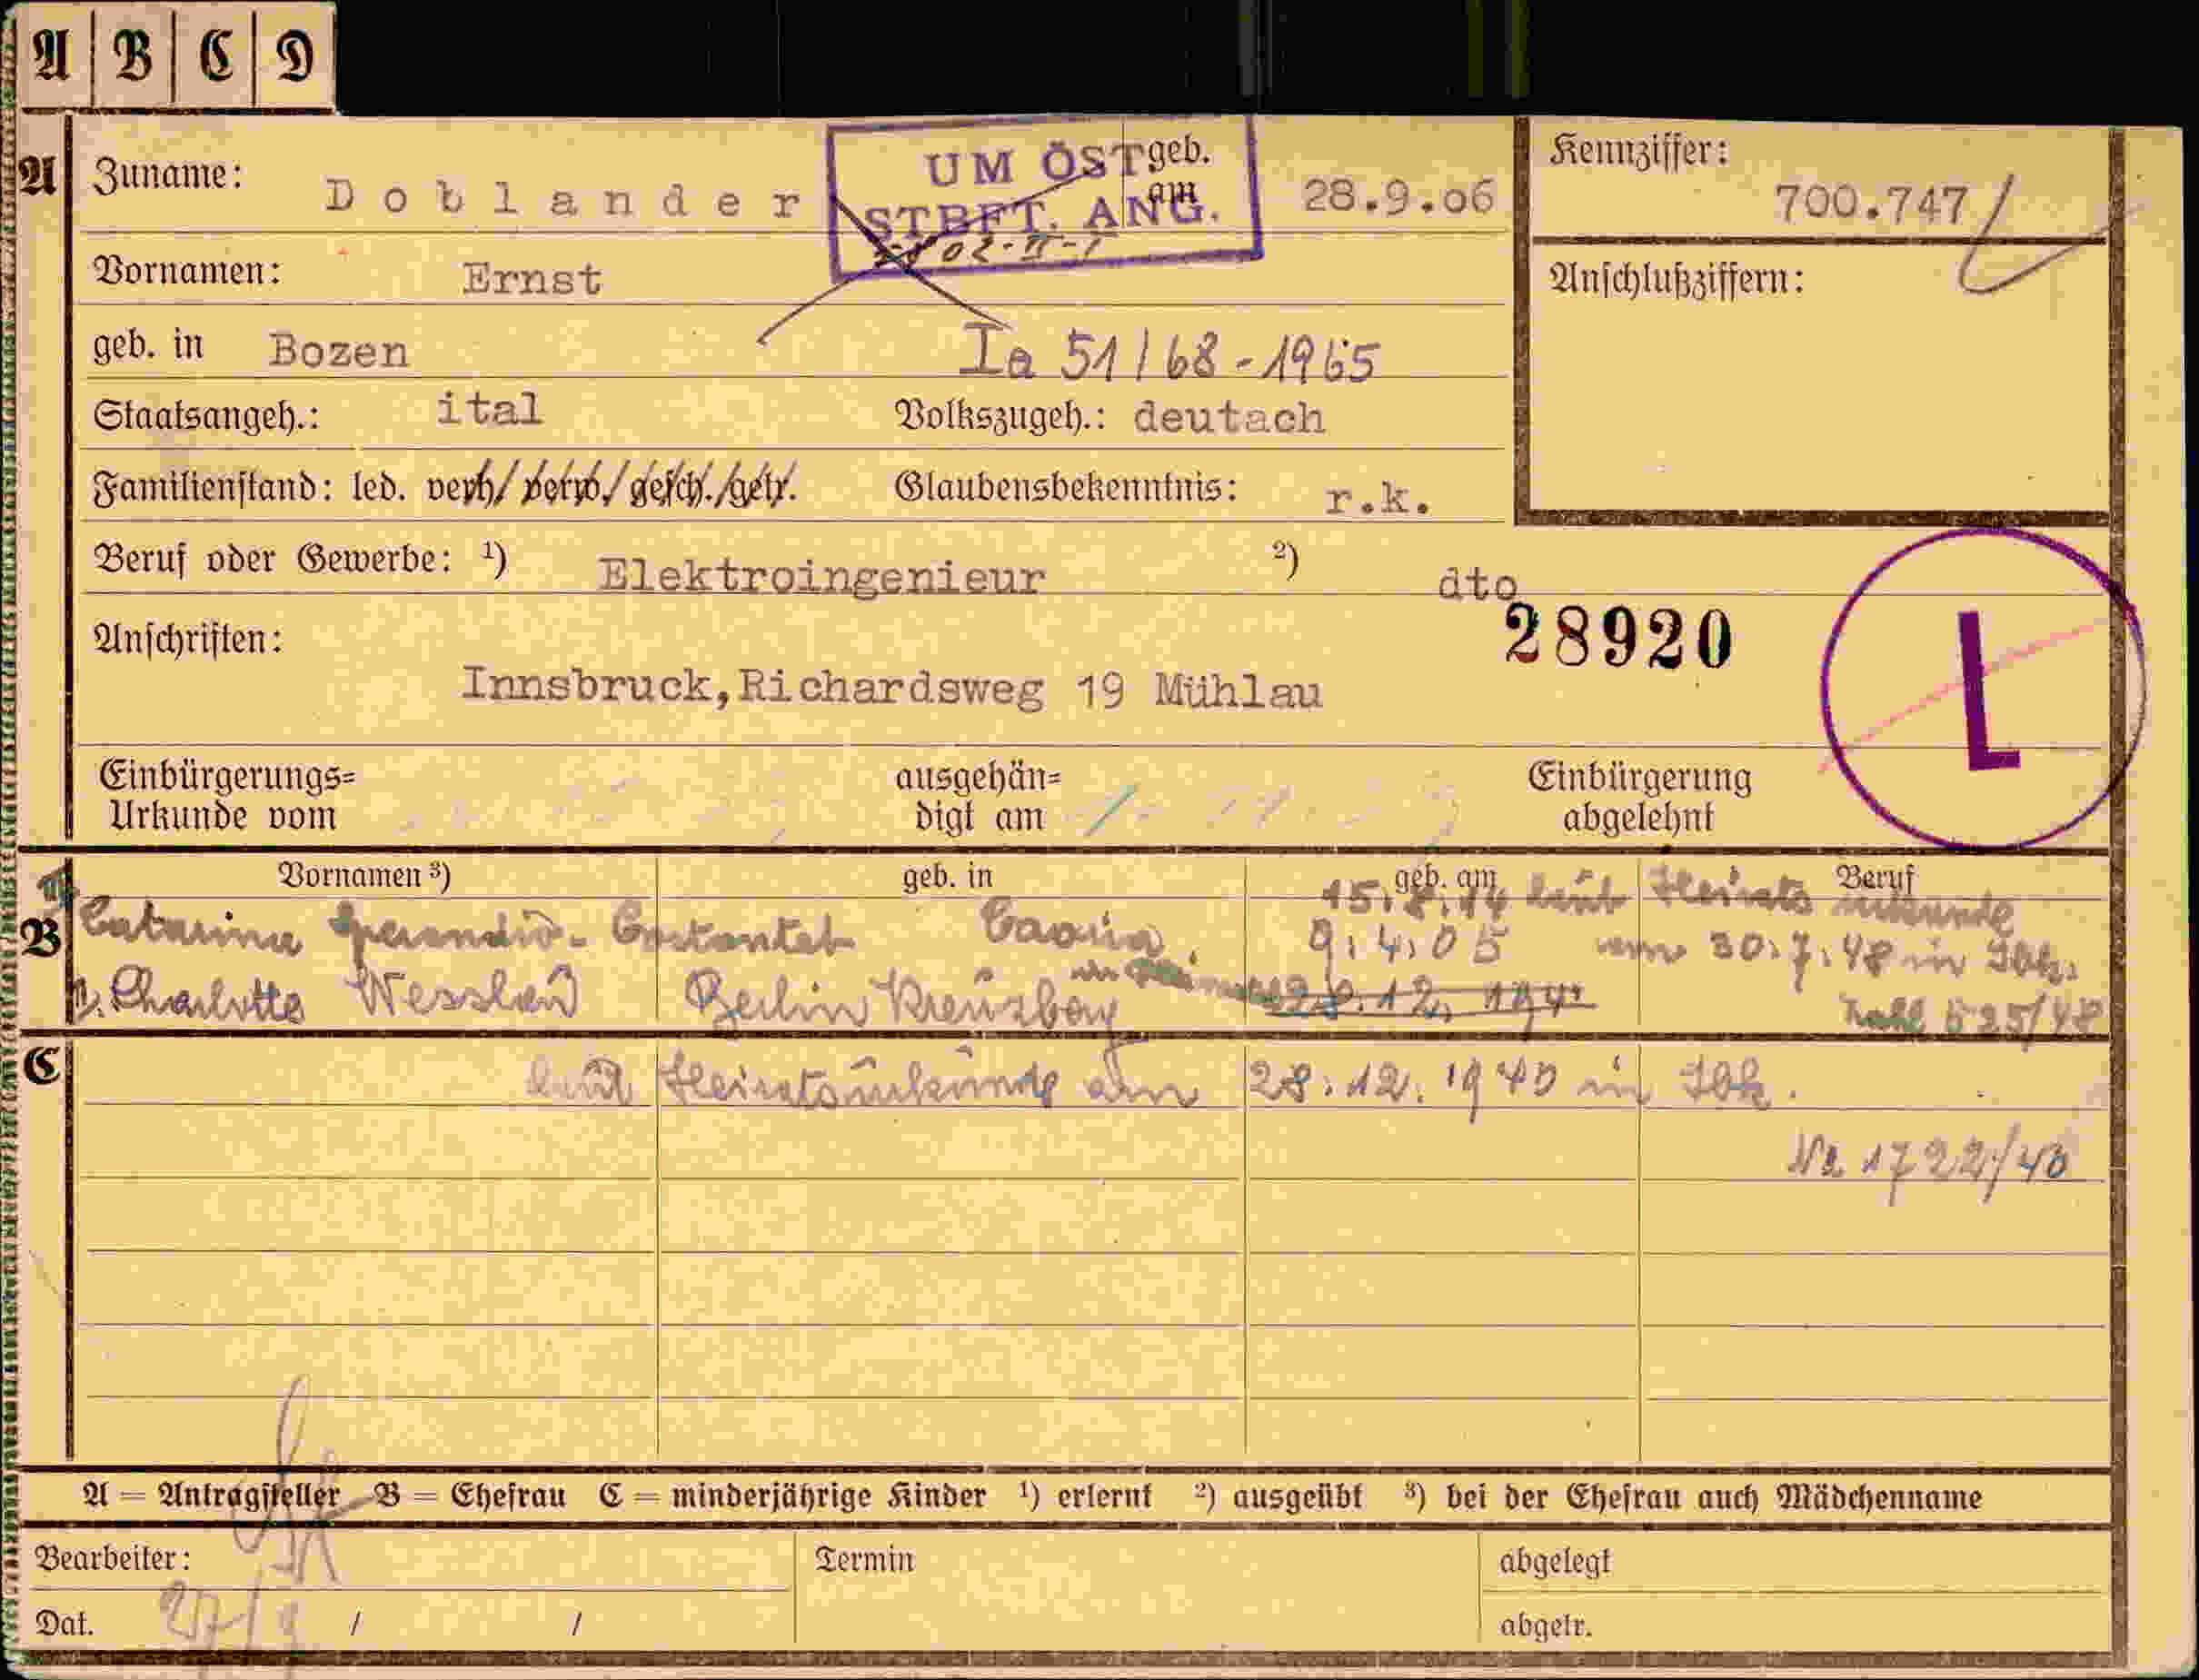 A B C D
A Zuname: Doblander geb. am 28.9.06
UM ÖST
STBFT. ANG.
Kennziffer: 700.747
Vornamen: Ernst
Anschlußziffern:
geb. in Bozen Ia 51/68-1965
Staatsangeh.: ital Volkszugeh.: deutach
Familienstand: led. verh/ verw./ gesch./getr. Glaubensbekenntnis: r.k.
Beruf oder Gewerbe: ¹) Elektroingenieur ²) dto
28920
L
Anschriften:
Innsbruck,Richardsweg 19 Mühlau
Einbürgerungs= ausgehän= Einbürgerung
Urkunde vom digt am abgelehnt
Vornamen ³) geb. in geb. am Beruf
15.8.14 laut Heirats urkunde
B Catarina 9.4.05 vom 30.7.48 in Ibk.
Charlotte Berlin Zahl 525/48
C laut Heiratsurkunde am 28.12.1940 in Ibk.
Nr 1722/40
A = Antragsteller B = Ehefrau C = minderjährige Kinder ¹) erlernt ²) ausgeübt ³) bei der Ehefrau auch Mädchenname
Bearbeiter: Termin abgelegt
Dat. 27/ / / abgetr.